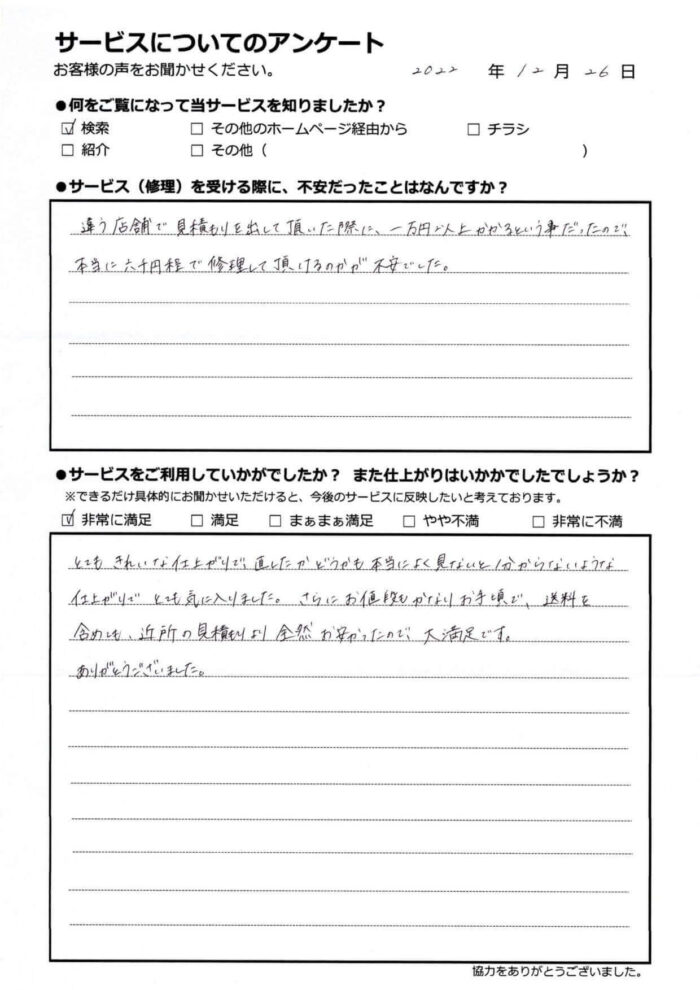 サービスについてのアンケート
お客様の声をお聞かせください。 2022 年 12 月 26 日
●何をご覧になって当サービスを知りましたか?
☑ 検索 □ その他のホームページ経由から □ チラシ
□ 紹介 □ その他 ( )
●サービス（修理）を受ける際に、不安だったことはなんですか?
違う店舗で見積もりを出して頂いた際に、一万円以上かかるという事だったので、
本当に六千円程で修理して頂けるのかが不安でした。
●サービスをご利用していかがでしたか? また仕上がりはいかかでしたでしょうか?
※できるだけ具体的にお聞かせいただけると、今後のサービスに反映したいと考えております。
☑ 非常に満足 □ 満足 □ まぁまぁ満足 □ やや不満 □ 非常に不満
とても きれいな仕上がりで、直したかどうかも本当によく見ないと分からないような
仕上がりで とても気に入りました。さらにお値段もかなりお手頃で、送料を
含めても、近所の見積もりより全然お安かったので、大満足です。
ありがとうございました。
協力をありがとうございました。